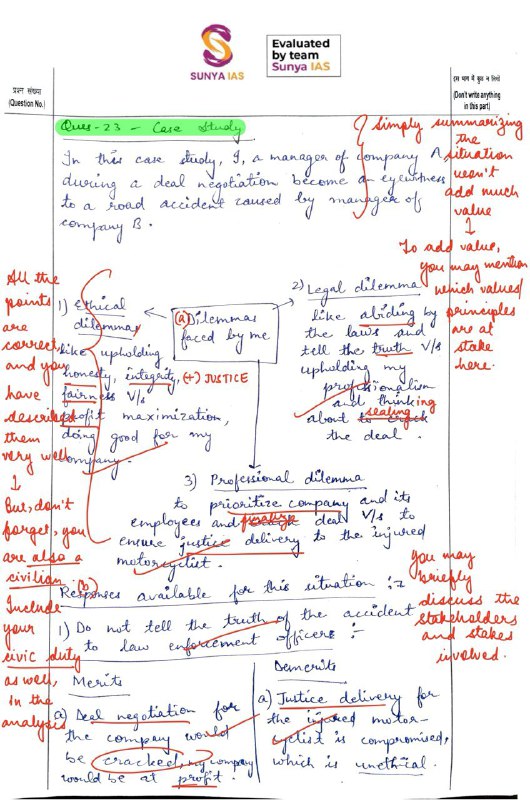 SUNYA IAS
Evaluated
by team
Sunya IAS
प्रश्न संख्या
(Question No.)
इस भाग में कुछ न लिखें
(Don't write anything
in this part)
Ques-23 - Case Study
In this case study, I, a manager of company A
during a deal negotiation become an eyewitness
to a road accident caused by manager of
company B.
Simply summarizing
the
situation
won't
add much
value
↓
To add value,
you may mention
which values/
principles
are at
stake
here.
(a) Dilemmas
faced by me
1) Ethical
dilemma
like upholding
honesty, integrity, (+) JUSTICE
fairness V/s
profit maximization,
doing good for my
company.
2) Legal dilemma
like abiding by
the laws and
tell the truth V/s
upholding my
professionalism
and thinking
about to crack sealing
the deal.
3) Professional dilemma
to prioritize company and its
employees and finalize deal V/s to
ensure justice delivery to the injured
motorcyclist.
All the
points
are
correct,
and you
have
described
them
very well
↓
But, don't
forget, you
are also a
civilian.
Include
your
civic duty
as well,
in the
analysis
(b)
Responses available for this situation :-
1) Do not tell the truth of the accident
to law enforcement officers :-
You may
briefly
discuss the
stakeholders
and stakes
involved.
Merits
a) Deal negotiation for
the company would
be cracked, my company
would be at profit.
Demerits
a) Justice delivery for
the injured motor-
cyclist is compromised,
which is unethical.